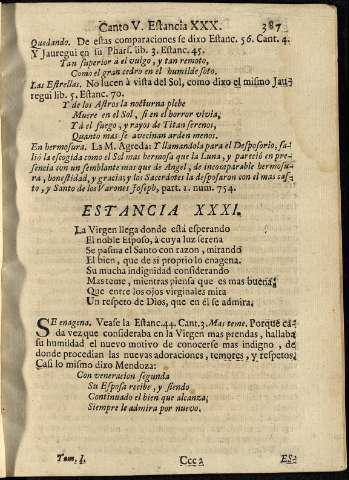 Canto V. Estancia XXX. 387
Quedando. De estas comparaciones se dixo Estanc. 56. Cant. 4.
Y Jauregui en su Phars. lib. 3. Estanc. 45.
Tan superior à el vulgo, y tan remoto,
Como el gran cedro en el humilde soto.
Las Estrellas. No lucen à vista del Sol, como dixo el mismo Jau-
regui lib. 5. Estanc. 70.
Y de los Astros la nocturna plebe
Muere en el Sol, si en el horror vivia,
Yà el fuego, y rayos de Titan serenos,
Quanto mas se avecinan arden menos.
En hermosura. La M. Agreda: Y llamandola para el Desposorio, sa-
liò la escogida como el Sol mas hermosa que la Luna, y pareciò en pre-
sencia con un semblante mas que de Angel, de incomparable hermosu-
ra, honestidad, y gracia; y los Sacerdantes la desposaron con el mas cas-
to, y Santo de los Varones Joseph, part. 1. num. 754.
ESTANCIA XXXI.
La Virgen llega donde està esperando
El noble Esposo, à cuya luz serena
Se pasma el Santo con razon, mirando
El bien, que de si proprio lo enagena.
Su mucha indignidad considerando
Mas teme, mientras piensa que es mas buena;
Que entre los ojos virginales mira
Un respeto de Dios, que en èl se admira.
SE enagena. Vease la Estanc. 44. Cant. 3. Mas teme. Porque ca-
da vez que consideraba en la Virgen mas prendas, hallaba
su humildad el nuevo motivo de conocerse mas indigno, de
donde procedian las nuevas adoraciones, temores, y respetos.
Casi lo mismo dixo Mendoza:
Con veneracion segunda
Su Esposa recibe, y siendo
Continuado el bien que alcanza,
Siempre le admira por nuevo.
Tom. I. Ccc 2 ES-